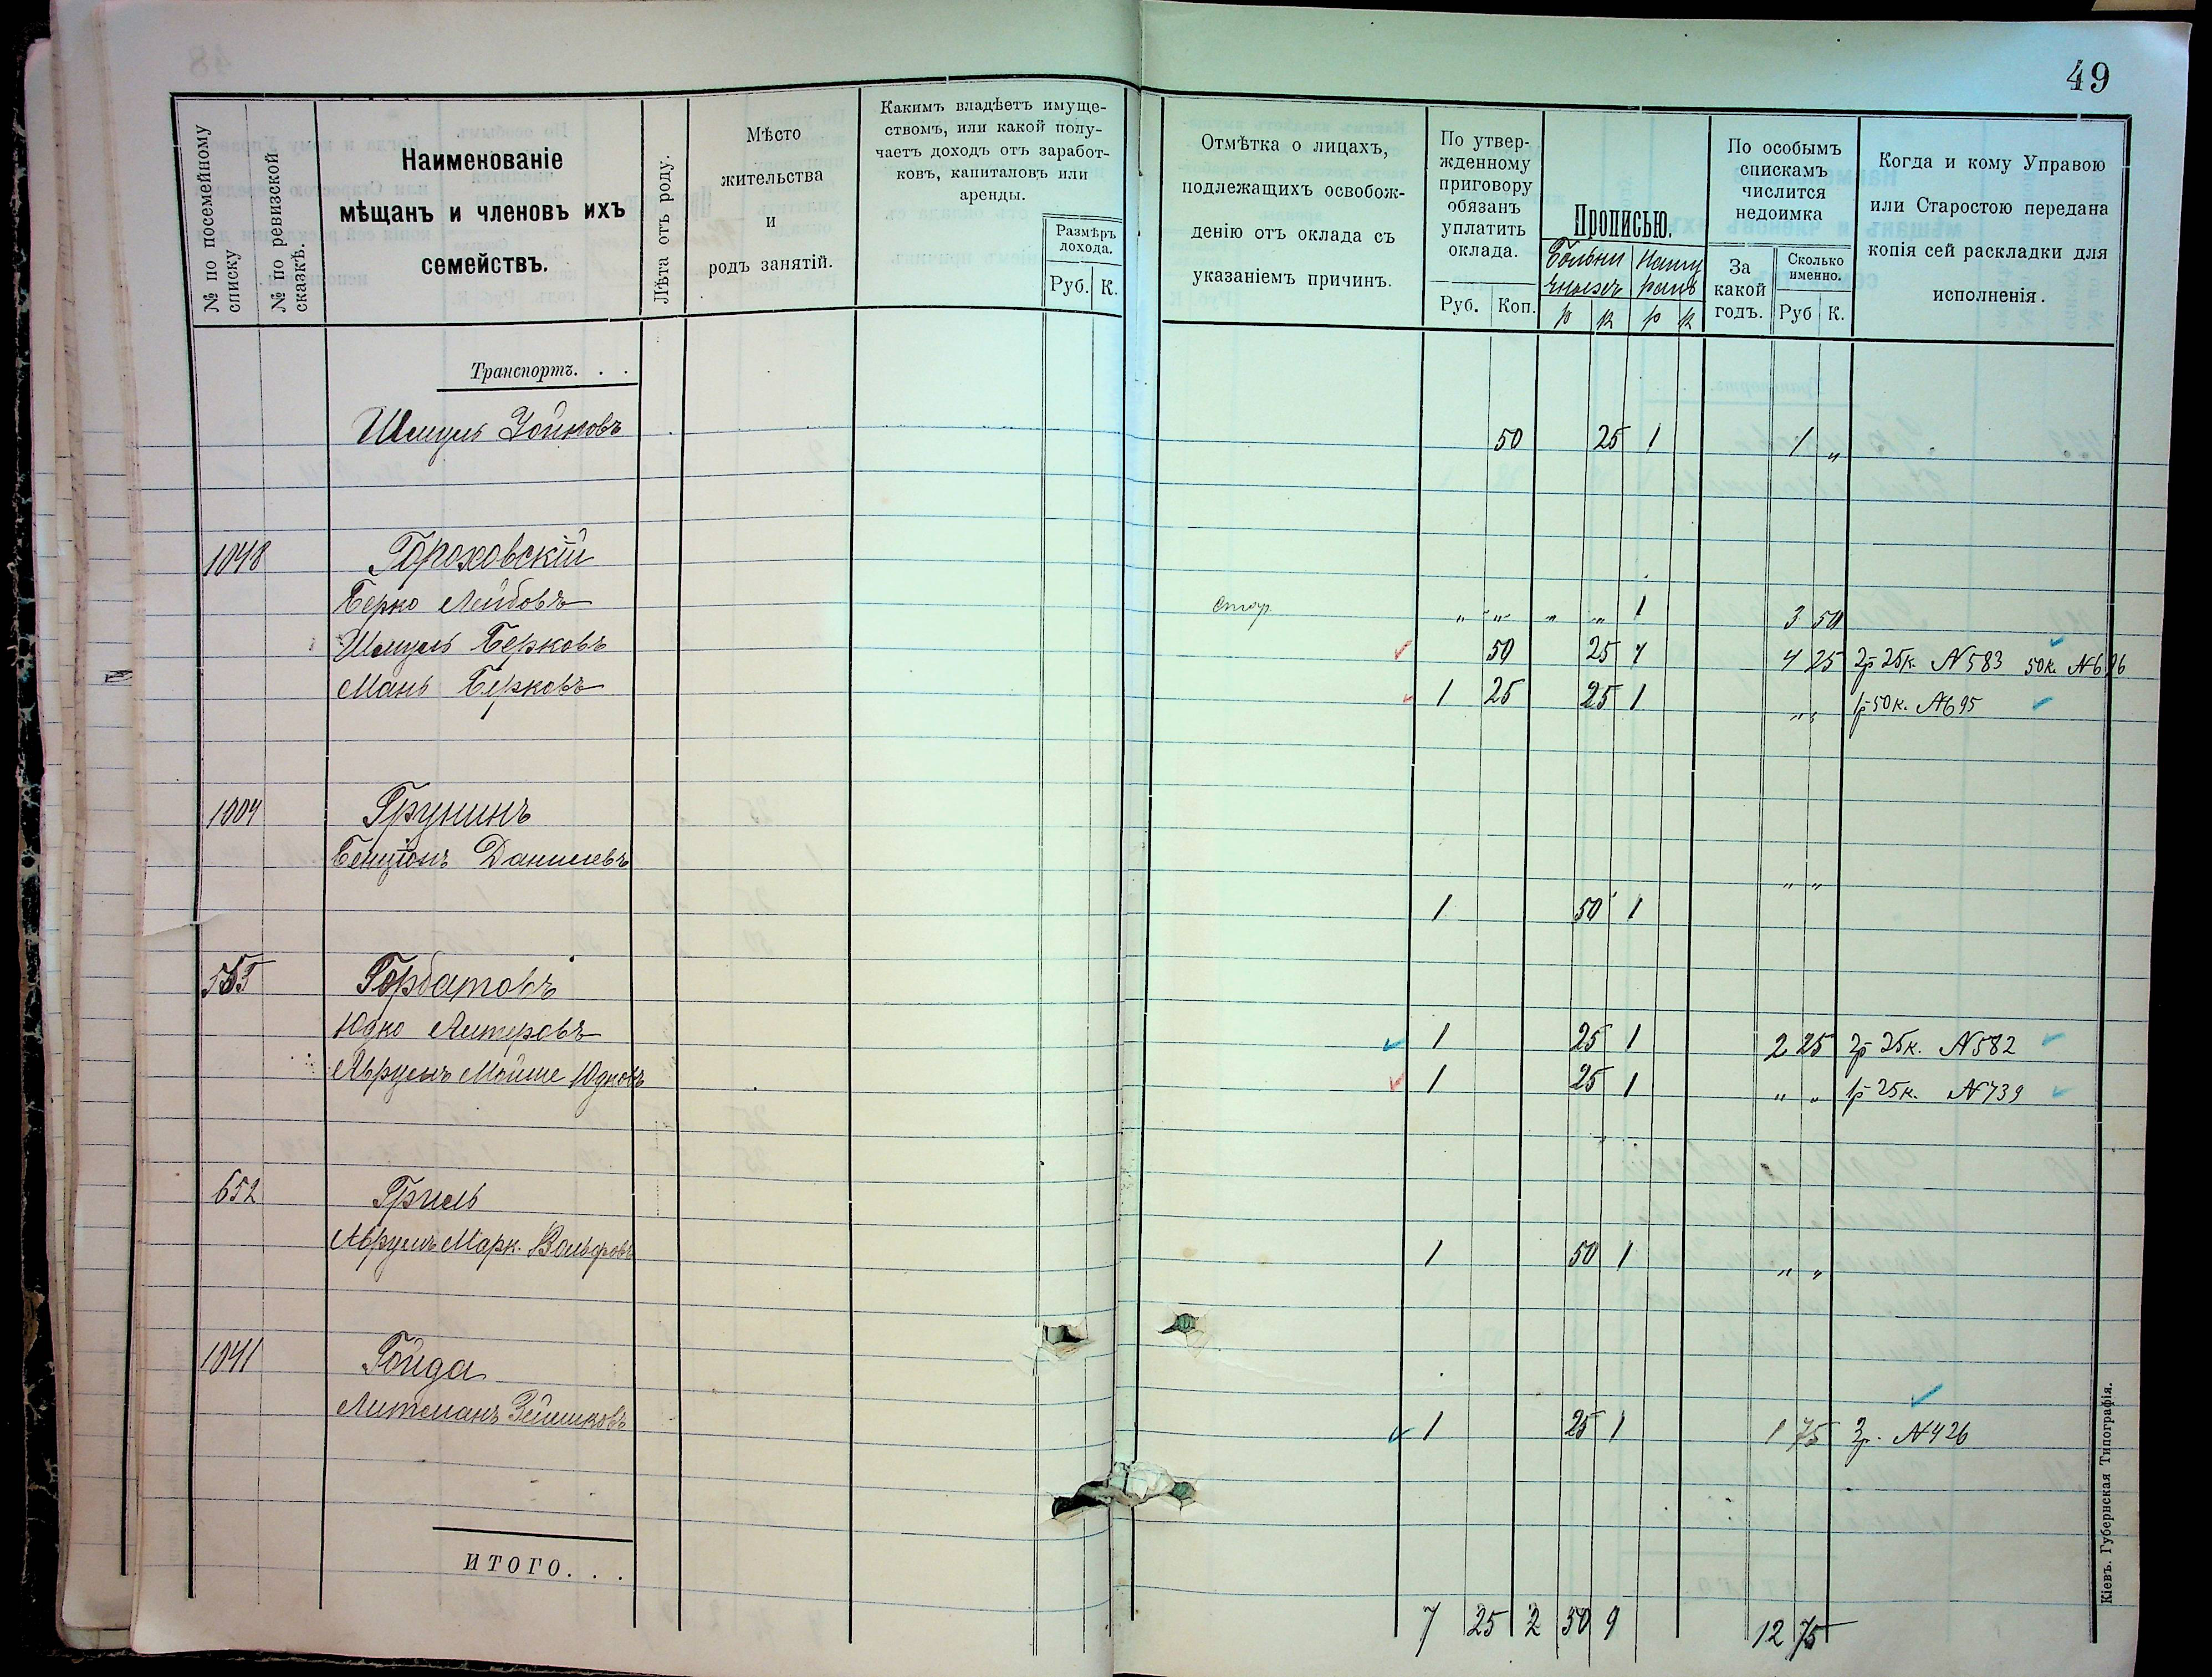 49
№ по посемейному списку
№ по ревизской сказкѣ.
Наименованіе
мѣщанъ и членовъ ихъ
семействъ.
Лѣта отъ роду.
Мѣсто
жительства
и
родъ занятій.
Какимъ владѣетъ имуще-
ствомъ, или какой полу-
чаетъ доходъ отъ заработ-
ковъ, капиталовъ или
аренды.
Размѣръ
дохода.
Руб. К.
Отмѣтка о лицахъ,
подлежащихъ освобож-
денію отъ оклада съ
указаніемъ причинъ.
По утвер-
жденному
приговору
обязанъ
уплатить
оклада.
Руб. Коп.
Прописью.
р к р к
По особымъ
спискамъ
числится
недоимка
За
какой
годъ.
Сколько
именно.
Руб К.
Когда и кому Управою
или Старостою передана
копія сей раскладки для
исполненія.
Транспортъ. . .
Шмуль 50 25 1 1 „
1048 Гороховскій
Берко Лейбовъ „ „ „ „ 1 3 50
Шмуль Берковъ 50 25 1 4 25 2р 25к. N583 50к.
Мань Берковъ 1 25 25 1 „ „ 1р 50к. N695
1004 Грунинъ
Бенціонъ Данилевъ „ „
1 50 1
Горбатовъ
Юдко Алтеровъ 1 25 1 2 25 2р 25к. N582
Аврумъ Мойше Юдковъ 1 25 1 „ „ 1р 25к. N739
652 Гриль
Аврумъ Марк. Вольфовъ 1 50 1 „ „
1041 Гойда
Литманъ 1 25 1 1 75 3р. N426
ИТОГО. . .
7 25 2 50 9 12 75
Кіевъ. Губернская Типографія.